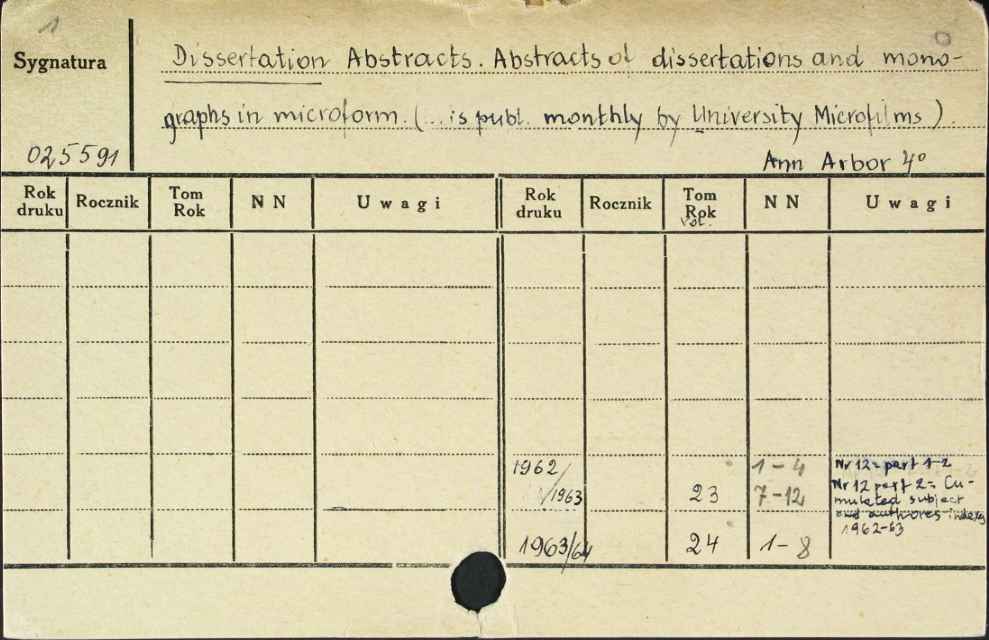 1
Sygnatura
Dissertation Abstracts. Abstracts of dissertations and mono-
graphs in microform. (... is publ. monthly by University Microfilms).
025591
Ann Arbor 4°
Rok druku Rocznik Tom Rok NN Uwagi Rok druku Rocznik Tom Rok Vol. NN Uwagi
1962/ 1-4 Nr 12 = part 1-2
/1963 23 7-12 Nr 12 part 2 = Cu-
mulated subject
and authores index
1962-63
1963/64 24 1-8